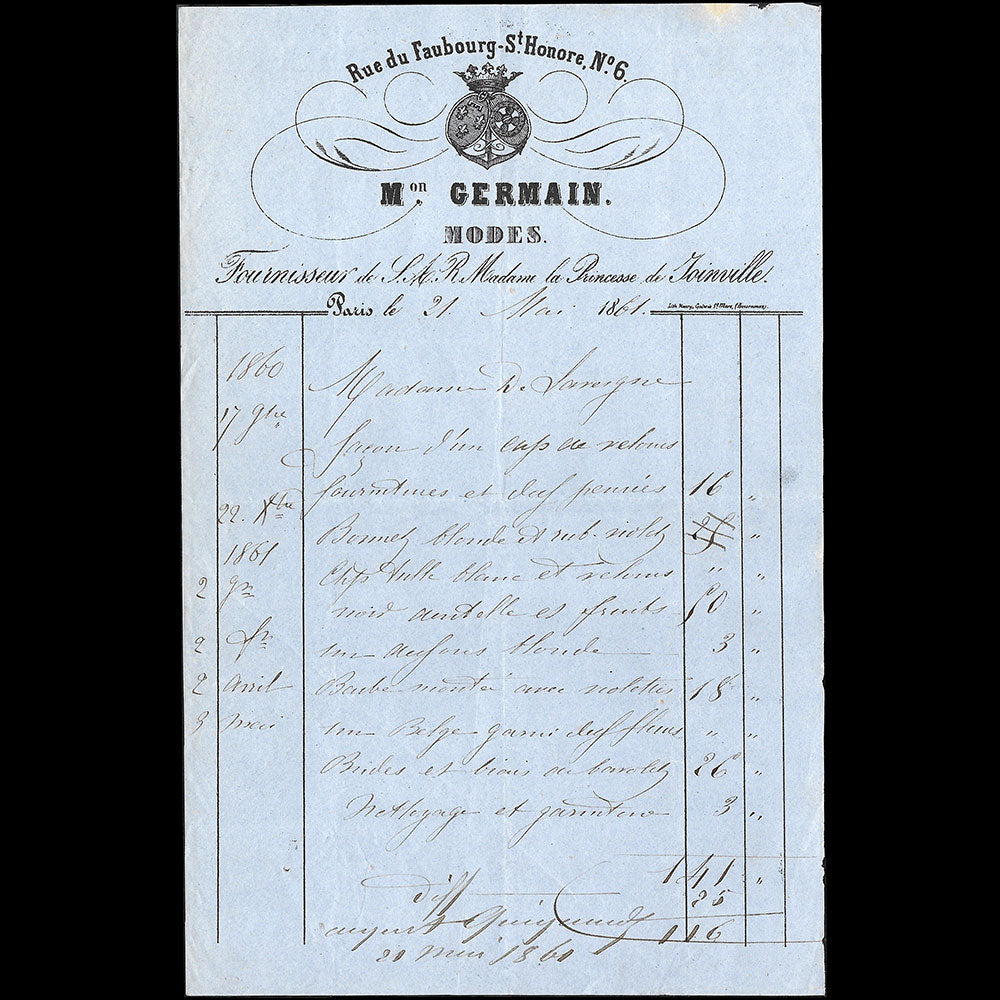 Rue du Faubourg-St. Honore, No. 6.
Mon. GERMAIN.
MODES.
Fournisseur de S.A.R. Madame la Princesse de Joinville.
Paris le 21 Mai 1861.
Lith. Maury, Galerie St Marc,
1860 Madame De
17 9bre façon d'un de velours
fournitures et pensées 16 "
22. Xbre Bonnet blonde et rub. violet 25 "
1861 tulle blanc et velours " "
2 dentelle et fruits 50 "
2 un blonde 3 "
2 avril Barbe montée avec violettes 18 "
3 mai un Belge garni fleurs " "
Brides et biais de bavolet 26 "
Nettoyage et garniture 3 "
141 "
25
116
21 mai 1861